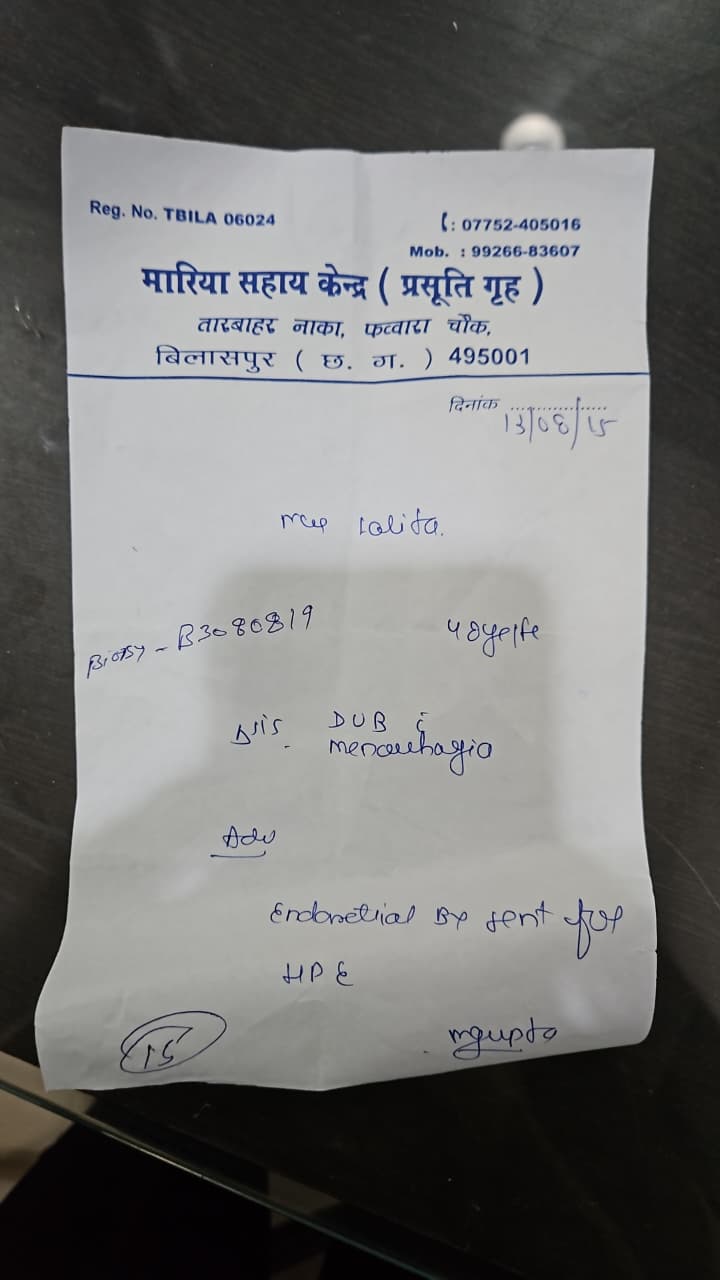 Reg. No. TBILA 06024
: 07752-405016
Mob. : 99266-83607
मारिया सहाय केन्द्र ( प्रसूति गृह )
तारबाहर नाका, फव्वारा चौक,
बिलासपुर ( छ. ग. ) 495001
दिनांक 13/08/15
Lalita.
B3080819
DUB c̄
Menorrhagia
Adv
Endometrial Bx sent for
HPE
mgupta
15